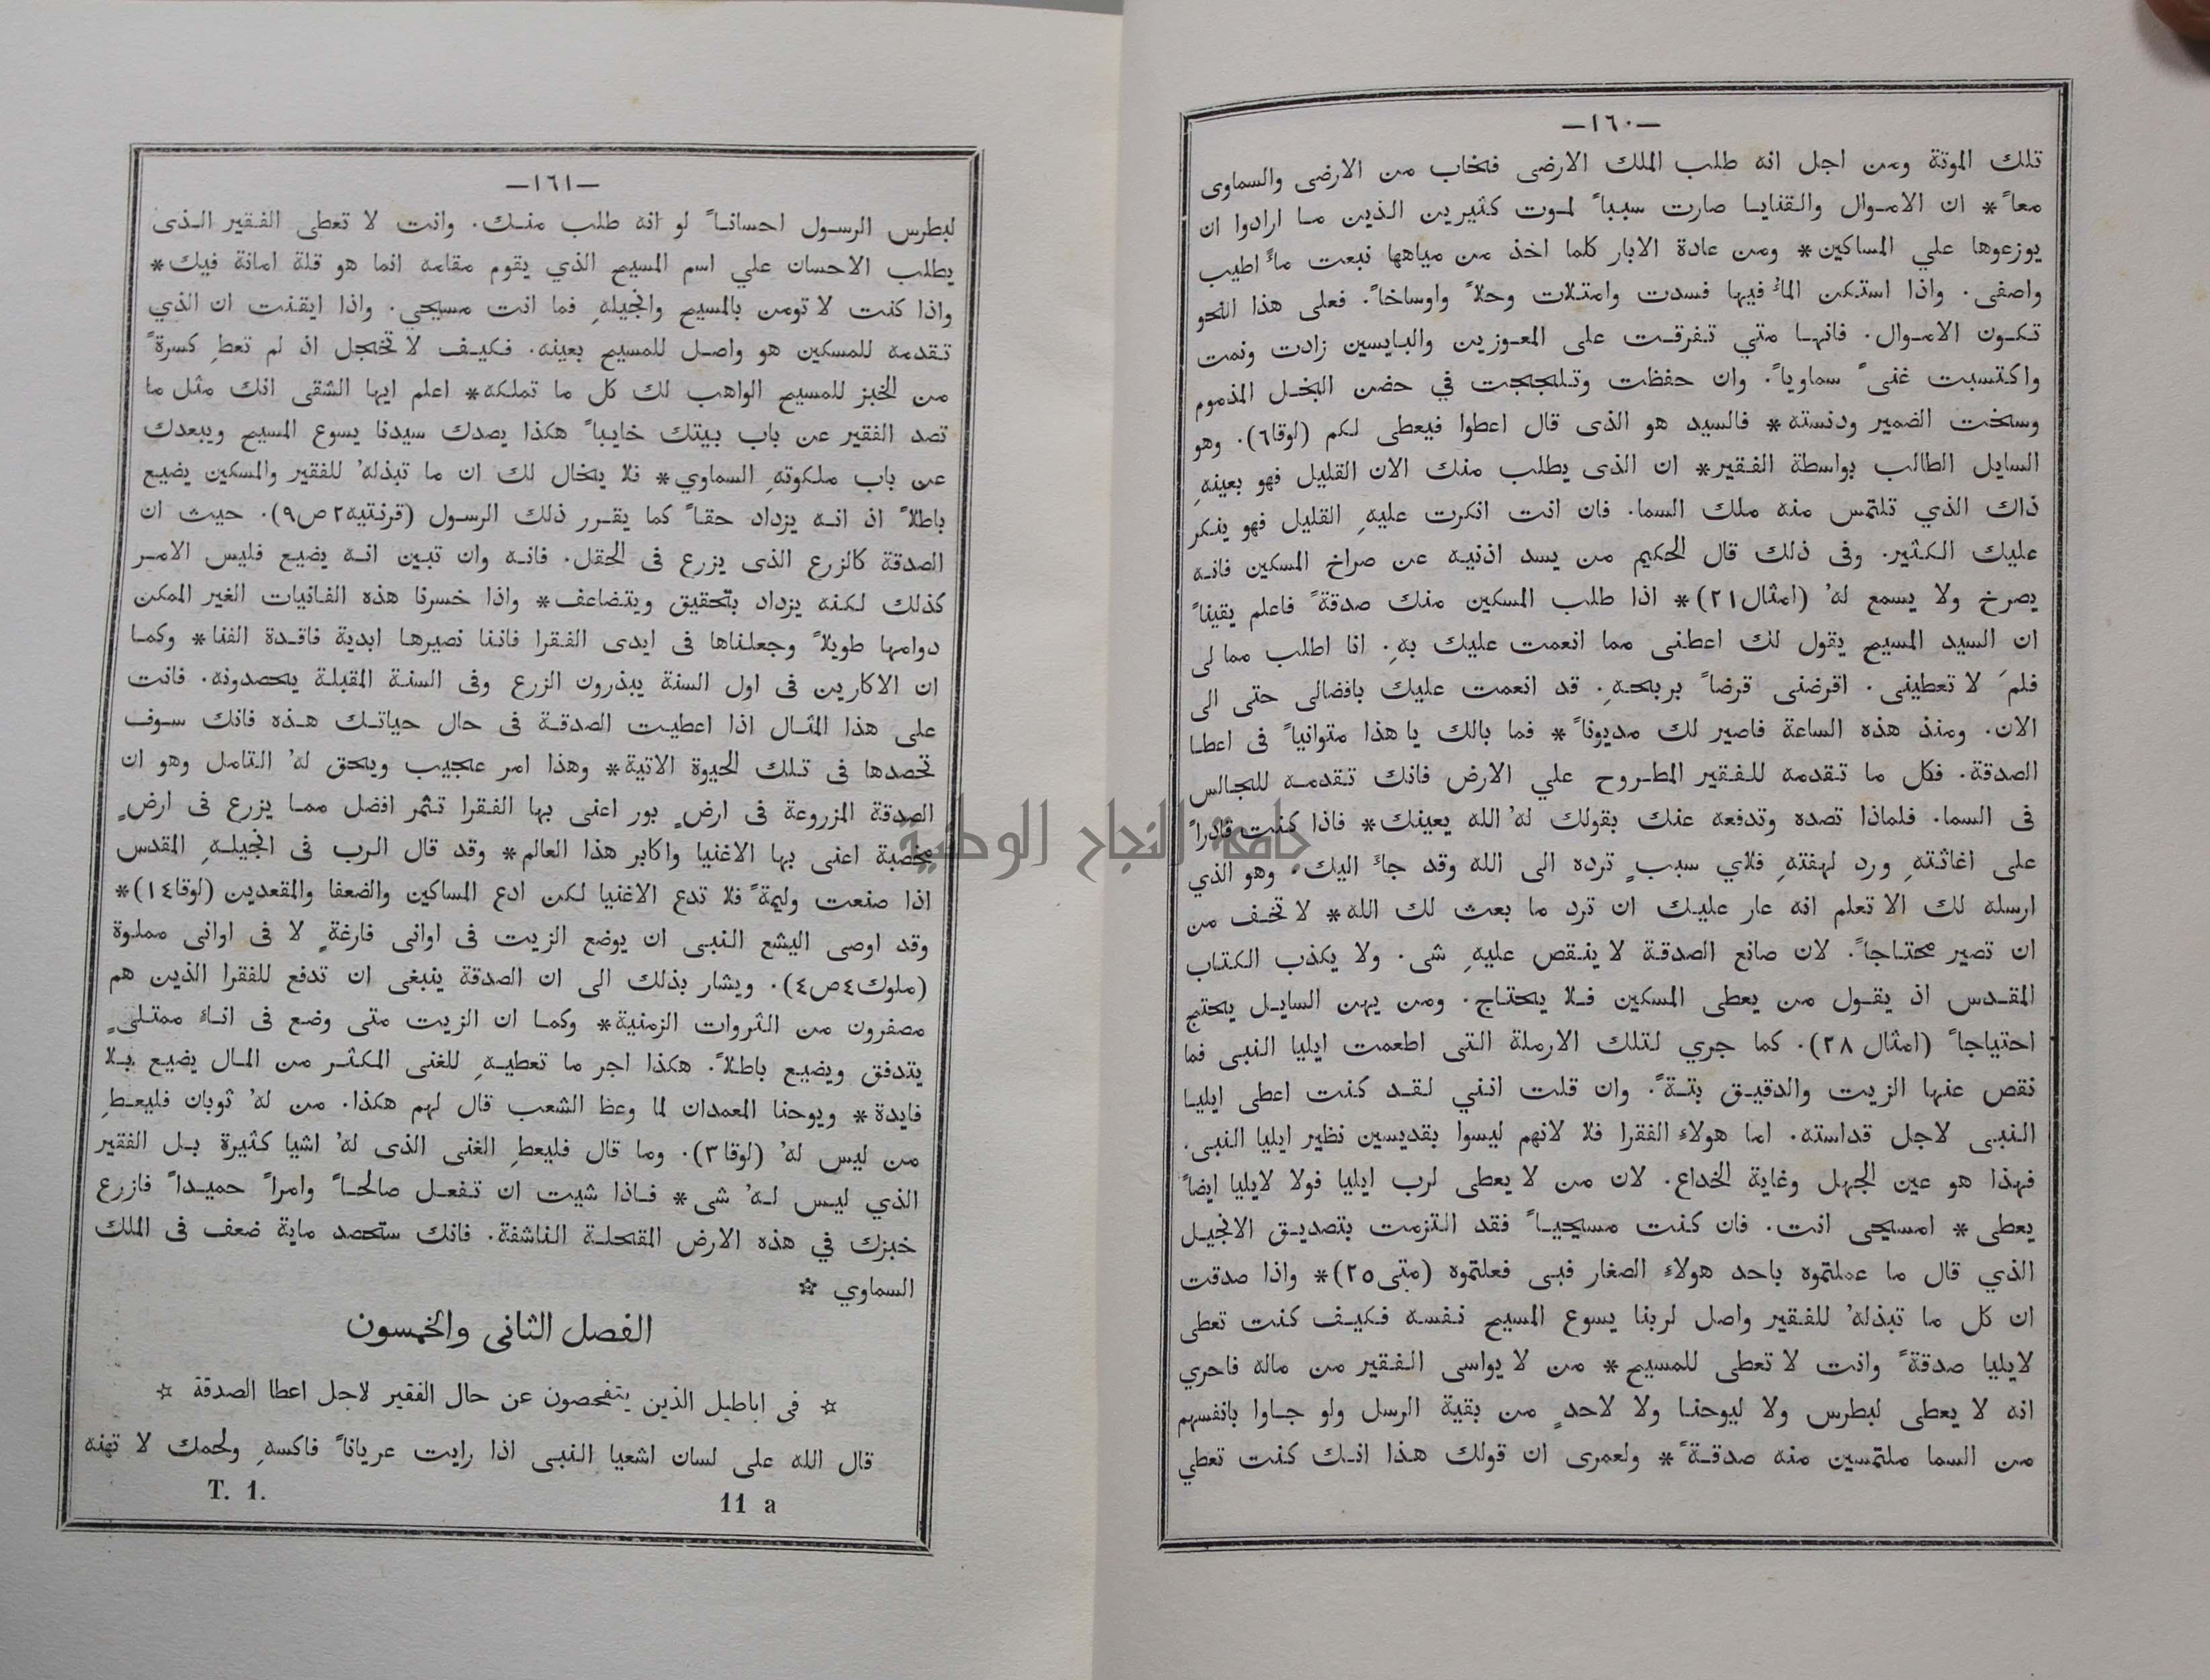 —١٦٠—
تلك الموتة ومن اجل انه طلب الملك الارضى فخاب من الارضى والسماوى
معاً* ان الاموال والقنايا صارت سبباً لموت كثيرين الذين ما ارادوا ان
يوزعوها علي المساكين* ومن عادة الابار كلما اخذ من مياهها نبعت ماءً اطيب
واصفى. واذا استكن الماءُ فيها فسدت وامتلات وحلاً واوساخاً. فعلى هذا النحو
تكون الاموال. فانها متي تفرقت على المعوزين والبايسين زادت ونمت
واكتسبت غنىً سماوياً. وان حفظت وتلججت في حضن البخل المذموم
وسخت الضمير ودنسته* فالسيد هو الذى قال اعطوا فيعطى لكم (لوقا٦). وهو
السايل الطالب بواسطة الفقير* ان الذى يطلب منك الان القليل فهو بعينهِ
ذاك الذي تلتمس منه ملك السما. فان انت انكرت عليهِ القليل فهو ينكر
عليك الكثير. وفى ذلك قال الحكيم من يسد اذنيه عن صراخ المسكين فانه
يصرخ ولا يسمع لهُ (امثال٢١)* اذا طلب المسكين منك صدقةً فاعلم يقيناً
ان السيد المسيح يقول لك اعطنى مما انعمت عليك بهِ. انا اطلب مما لى
فلمَ لا تعطينى. اقرضنى قرضاً بربحهِ. قد انعمت عليك بافضالى حتى الى
الان. ومنذ هذه الساعة فاصير لك مديوناً* فما بالك يا هذا متوانياً فى اعطا
الصدقة. فكل ما تقدمه للفقير المطروح علي الارض فانك تقدمه للجالس
فى السما. فلماذا تصده وتدفعه عنك بقولك لهُ الله يعينك* فاذا كنت قادراً
على اغاثتهِ ورد لهفتهِ فلاي سببٍ ترده الى الله وقد جاءَ اليك. وهو الذي
ارسله لك الا تعلم انه عار عليك ان ترد ما بعث لك الله* لا تخف من
ان تصير محتاجاً. لان صانع الصدقة لا ينقص عليهِ شى. ولا يكذب الكتاب
المقدس اذ يقول من يعطى المسكين فلا يحتاج. ومن يهن السايل يحتج
احتياجاً (امثال ٢٨). كما جري لتلك الارملة التى اطعمت ايليا النبى فما
نقص عنها الزيت والدقيق بتةً. وان قلت اننى لقد كنت اعطى ايليا
النبى لاجل قداسته. اما هولاء الفقرا فلا لانهم ليسوا بقديسين نظير ايليا النبى.
فهذا هو عين الجهل وغاية الخداع. لان من لا يعطى لرب ايليا فولا لايليا ايضاً
يعطى* امسيحى انت. فان كنت مسيحياً فقد التزمت بتصديق الانجيل
الذي قال ما عملتموه باحد هولاء الصغار فبى فعلتموه (متى٢٥)* واذا صدقت
ان كل ما تبذلهُ للفقير واصل لربنا يسوع المسيح نفسه فكيف كنت تعطى
لايليا صدقةً وانت لا تعطى للمسيح* من لا يواسى الفقير من ماله فاحري
انه لا يعطى لبطرس ولا ليوحنا ولا لاحدٍ من بقية الرسل ولو جاوا بانفسهم
من السما ملتمسين منه صدقةً* ولعمرى ان قولك هذا انك كنت تعطي
—١٦١—
لبطرس الرسول احساناً لو انه طلب منك. وانت لا تعطى الفقير الذى
يطلب الاحسان علي اسم المسيح الذي يقوم مقامه انما هو قلة امانة فيك*
واذا كنت لا تومن بالمسيح وانجيلهِ فما انت مسيحى. واذا ايقنت ان الذي
تقدمه للمسكين هو واصل للمسيح بعينه. فكيف لا تخجل اذ لم تعطِ كسرةً
من الخبز للمسيح الواهب لك كل ما تملكه* اعلم ايها الشقى انك مثل ما
تصد الفقير عن باب بيتك خايباً هكذا يصدك سيدنا يسوع المسيح ويبعدك
عن باب ملكوتهِ السماوي* فلا يخال لك ان ما تبذلهُ للفقير والمسكين يضيع
باطلاً اذ انه يزداد حقاً كما يقرر ذلك الرسول (قرنتيه٢ص٩). حيث ان
الصدقة كالزرع الذى يزرع فى الحقل. فانه وان تبين انه يضيع فليس الامر
كذلك لكنه يزداد بتحقيق ويتضاعف* واذا خسرنا هذه الفانيات الغير الممكن
دوامها طويلاً وجعلناها فى ايدى الفقرا فاننا نصيرها ابدية فاقدة الفنا* وكما
ان الاكارين فى اول السنة يبذرون الزرع وفى السنة المقبلة يحصدونه. فانت
على هذا المثال اذا اعطيت الصدقة فى حال حياتك هذه فانك سوف
تحصدها فى تلك الحيوة الاتية* وهذا امر عجيب ويحق لهُ التامل وهو ان
الصدقة المزروعة فى ارضٍ بور اعنى بها الفقرا تثمر افضل مما يزرع فى ارضٍ
مخصبة اعنى بها الاغنيا واكابر هذا العالم* وقد قال الرب فى انجيلهِ المقدس
اذا صنعت وليمةً فلا تدع الاغنيا لكن ادع المساكين والضعفا والمقعدين (لوقا١٤)*
وقد اوصى اليشع النبى ان يوضع الزيت فى اوانى فارغةٍ لا فى اوانى مملوة
(ملوك٤ص٤). ويشار بذلك الى ان الصدقة ينبغى ان تدفع للفقرا الذين هم
مصفرون من الثروات الزمنية* وكما ان الزيت متى وضع فى اناءٍ ممتلىٍ
يتدفق ويضيع باطلاً. هكذا اجر ما تعطيهِ للغنى المكثر من المال يضيع بلا
فايدة* ويوحنا المعمدان لما وعظ الشعب قال لهم هكذا. من لهُ ثوبان فليعطِ
من ليس لهُ (لوقا٣). وما قال فليعطِ الغنى الذى لهُ اشيا كثيرة بل الفقير
الذي ليس لهُ شى* فاذا شيت ان تفعل صالحاً وامراً حميداً فازرع
خبزك في هذه الارض المقحلة الناشفة. فانك ستحصد ماية ضعف فى الملك
السماوي ☆
الفصل الثانى والخمسون
☆ فى اباطيل الذين يتفحصون عن حال الفقير لاجل اعطا الصدقة ☆
قال الله على لسان اشعيا النبى اذا رايت عرياناً فاكسهِ ولحمك لا تهنه
T. 1. 11 a
جامعة النجاح الوطنية